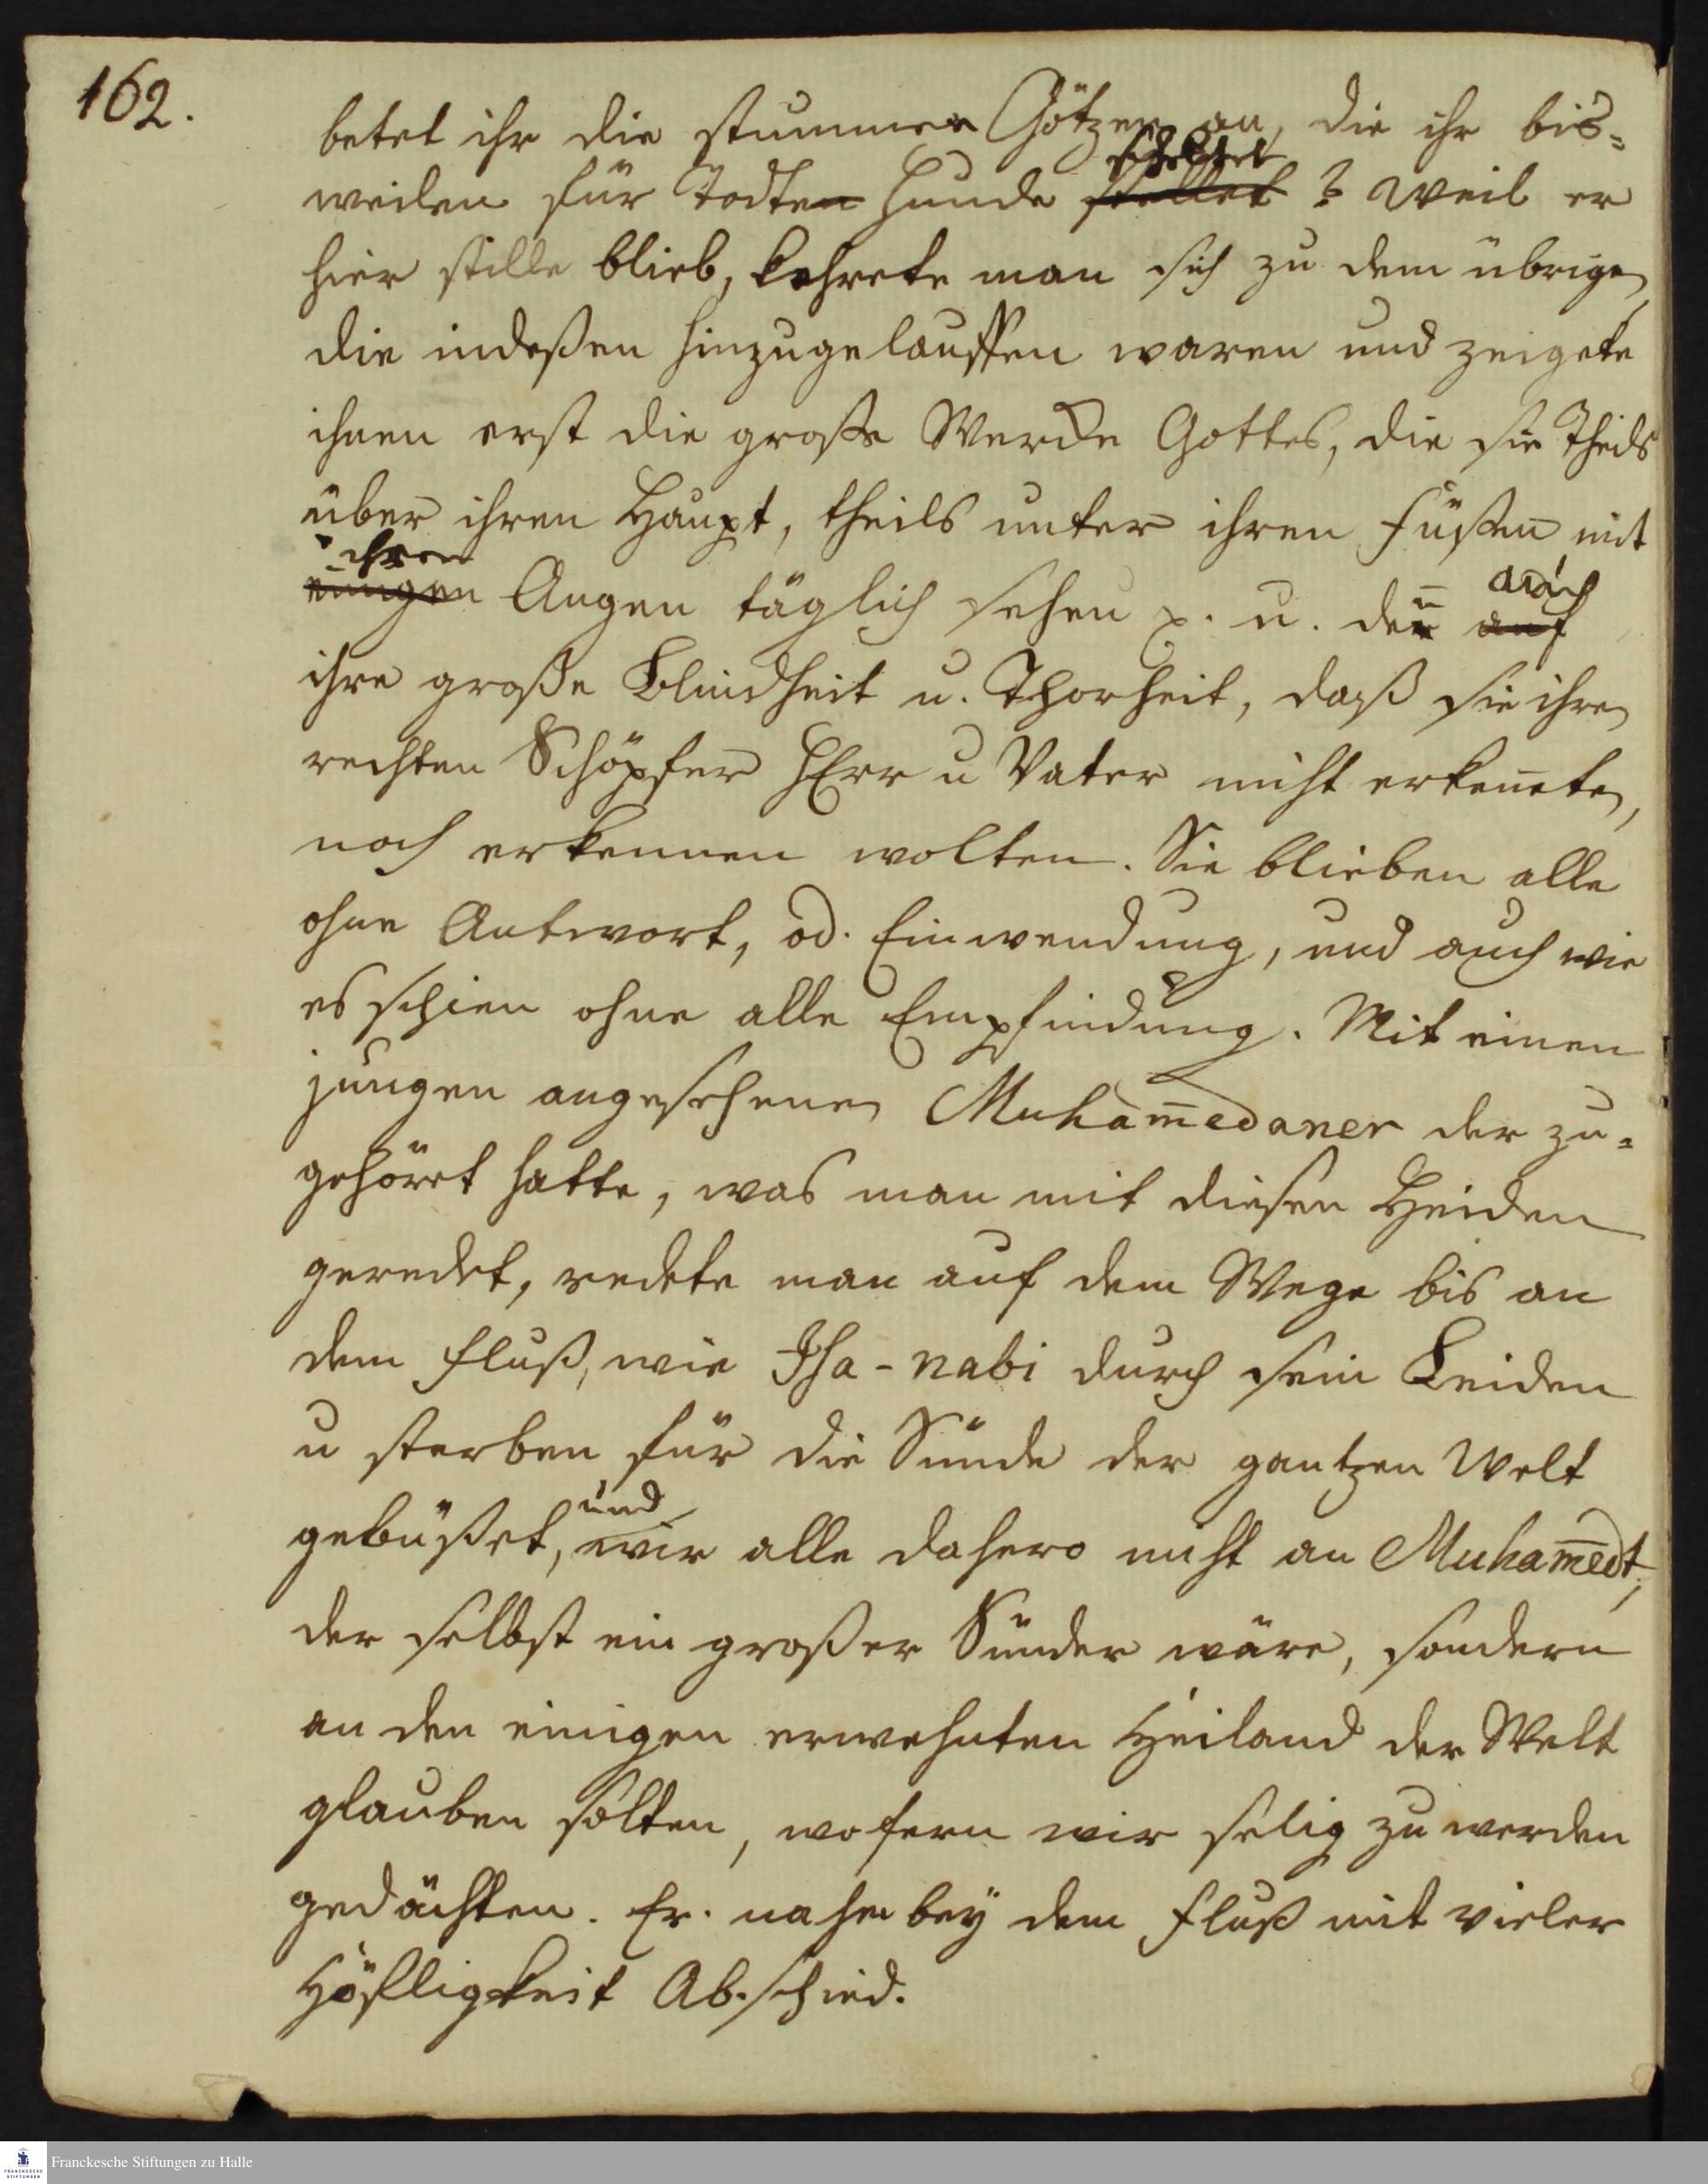 162.
betet ihr die stummen Götzen an, die ihr bis=
weilen für Todten Hunde scheltet stellet? Weil er
hier stille blieb, kehrete man sich zu dem übrigen,
die indeßen hinzugelauffen waren und zeigete
ihnen erst die große Wercke Gottes, die sie theils
über ihren Haupt, theils unter ihren Füßen mit
ihren
einigen Augen täglich sehen p. u. den̄ auch auf
ihre große Blindheit u. Thorheit, daß sie ihren
rechten Schöpfer HErr u Vater nicht erken̄eten,
noch erkennen wolten. Sie blieben alle
ohne Antwort, od. Einwendung, und auch wie
es schien ohne alle Empfindung. Mit einen
jungen angesehenen Muham̄edaner der zu=
gehöret hatte, was man mit diesen Heiden
geredet, redete man auf dem Wege bis an
dem Fluß, wie Isa-nabi durch sein Leiden
u sterben für die Sünde der gantzen Welt
gebüßet, und wir alle dahero nicht an Muham̄edt,
der selbst ein großer Sünder wäre, sondern
an den einigen erwehnten Heiland der Welt
glauben solten, wofern wir selig zu werden
gedächten. Er. nahm bey dem Fluß mit vieler
Höfligkeit Abschied.
Franckesche Stiftungen zu Halle
FRANCKESCHE
STIFTUNGEN